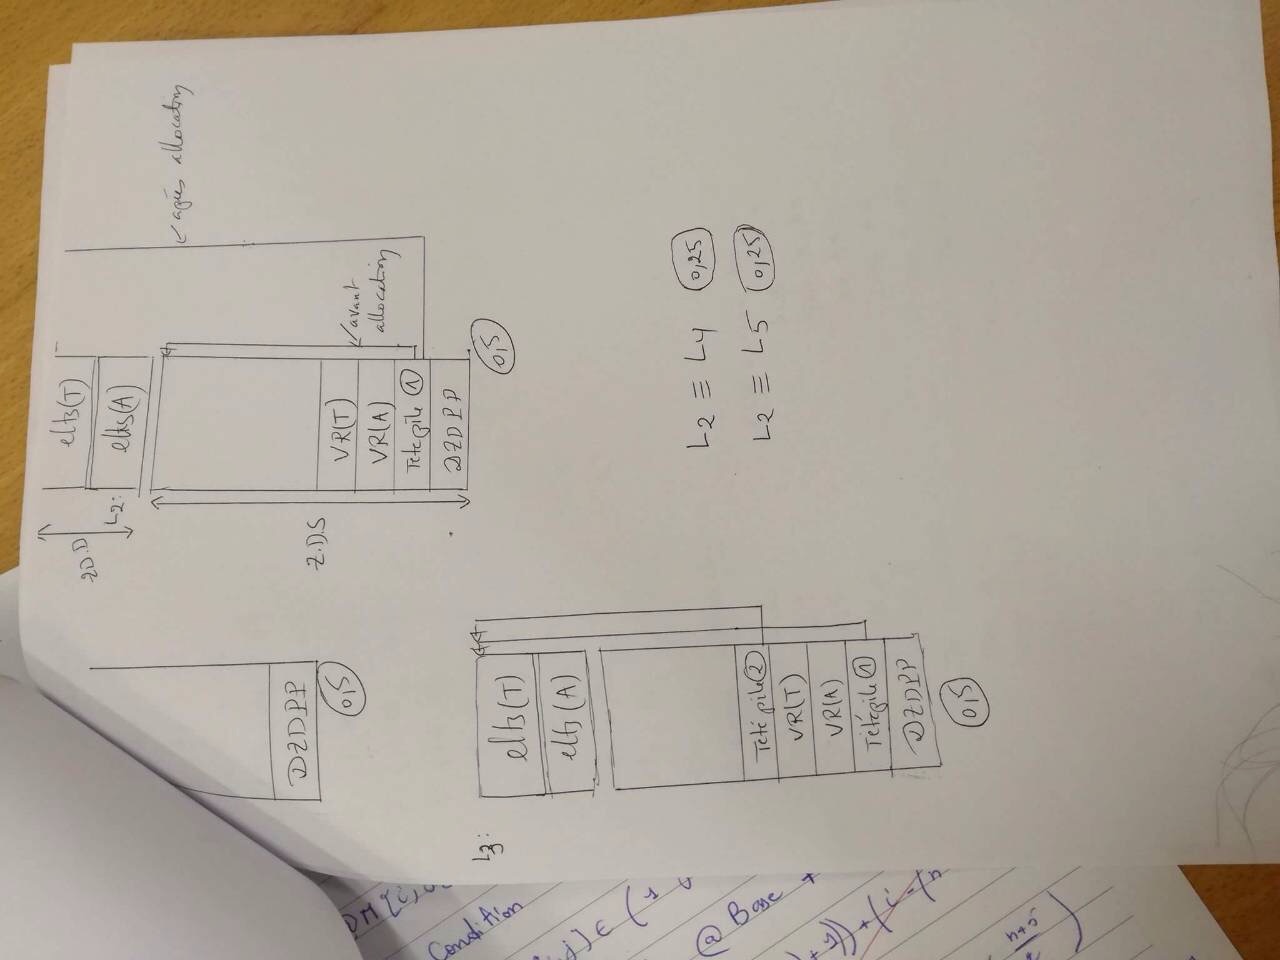 DZDPP
0,5
Z.D.D
L2:
elts(T)
elts(A)
Z.D.S
VR(T)
VR(A)
Tête pile ①
DZDPP
0,5
avant
allocation
après allocation
L3:
elts(T)
elts(A)
Tête pile ②
VR(T)
VR(A)
Tête pile ①
DZDPP
0,5
L2 ≡ L4 0,25
L2 ≡ L5 0,25
Condition
@ Base +